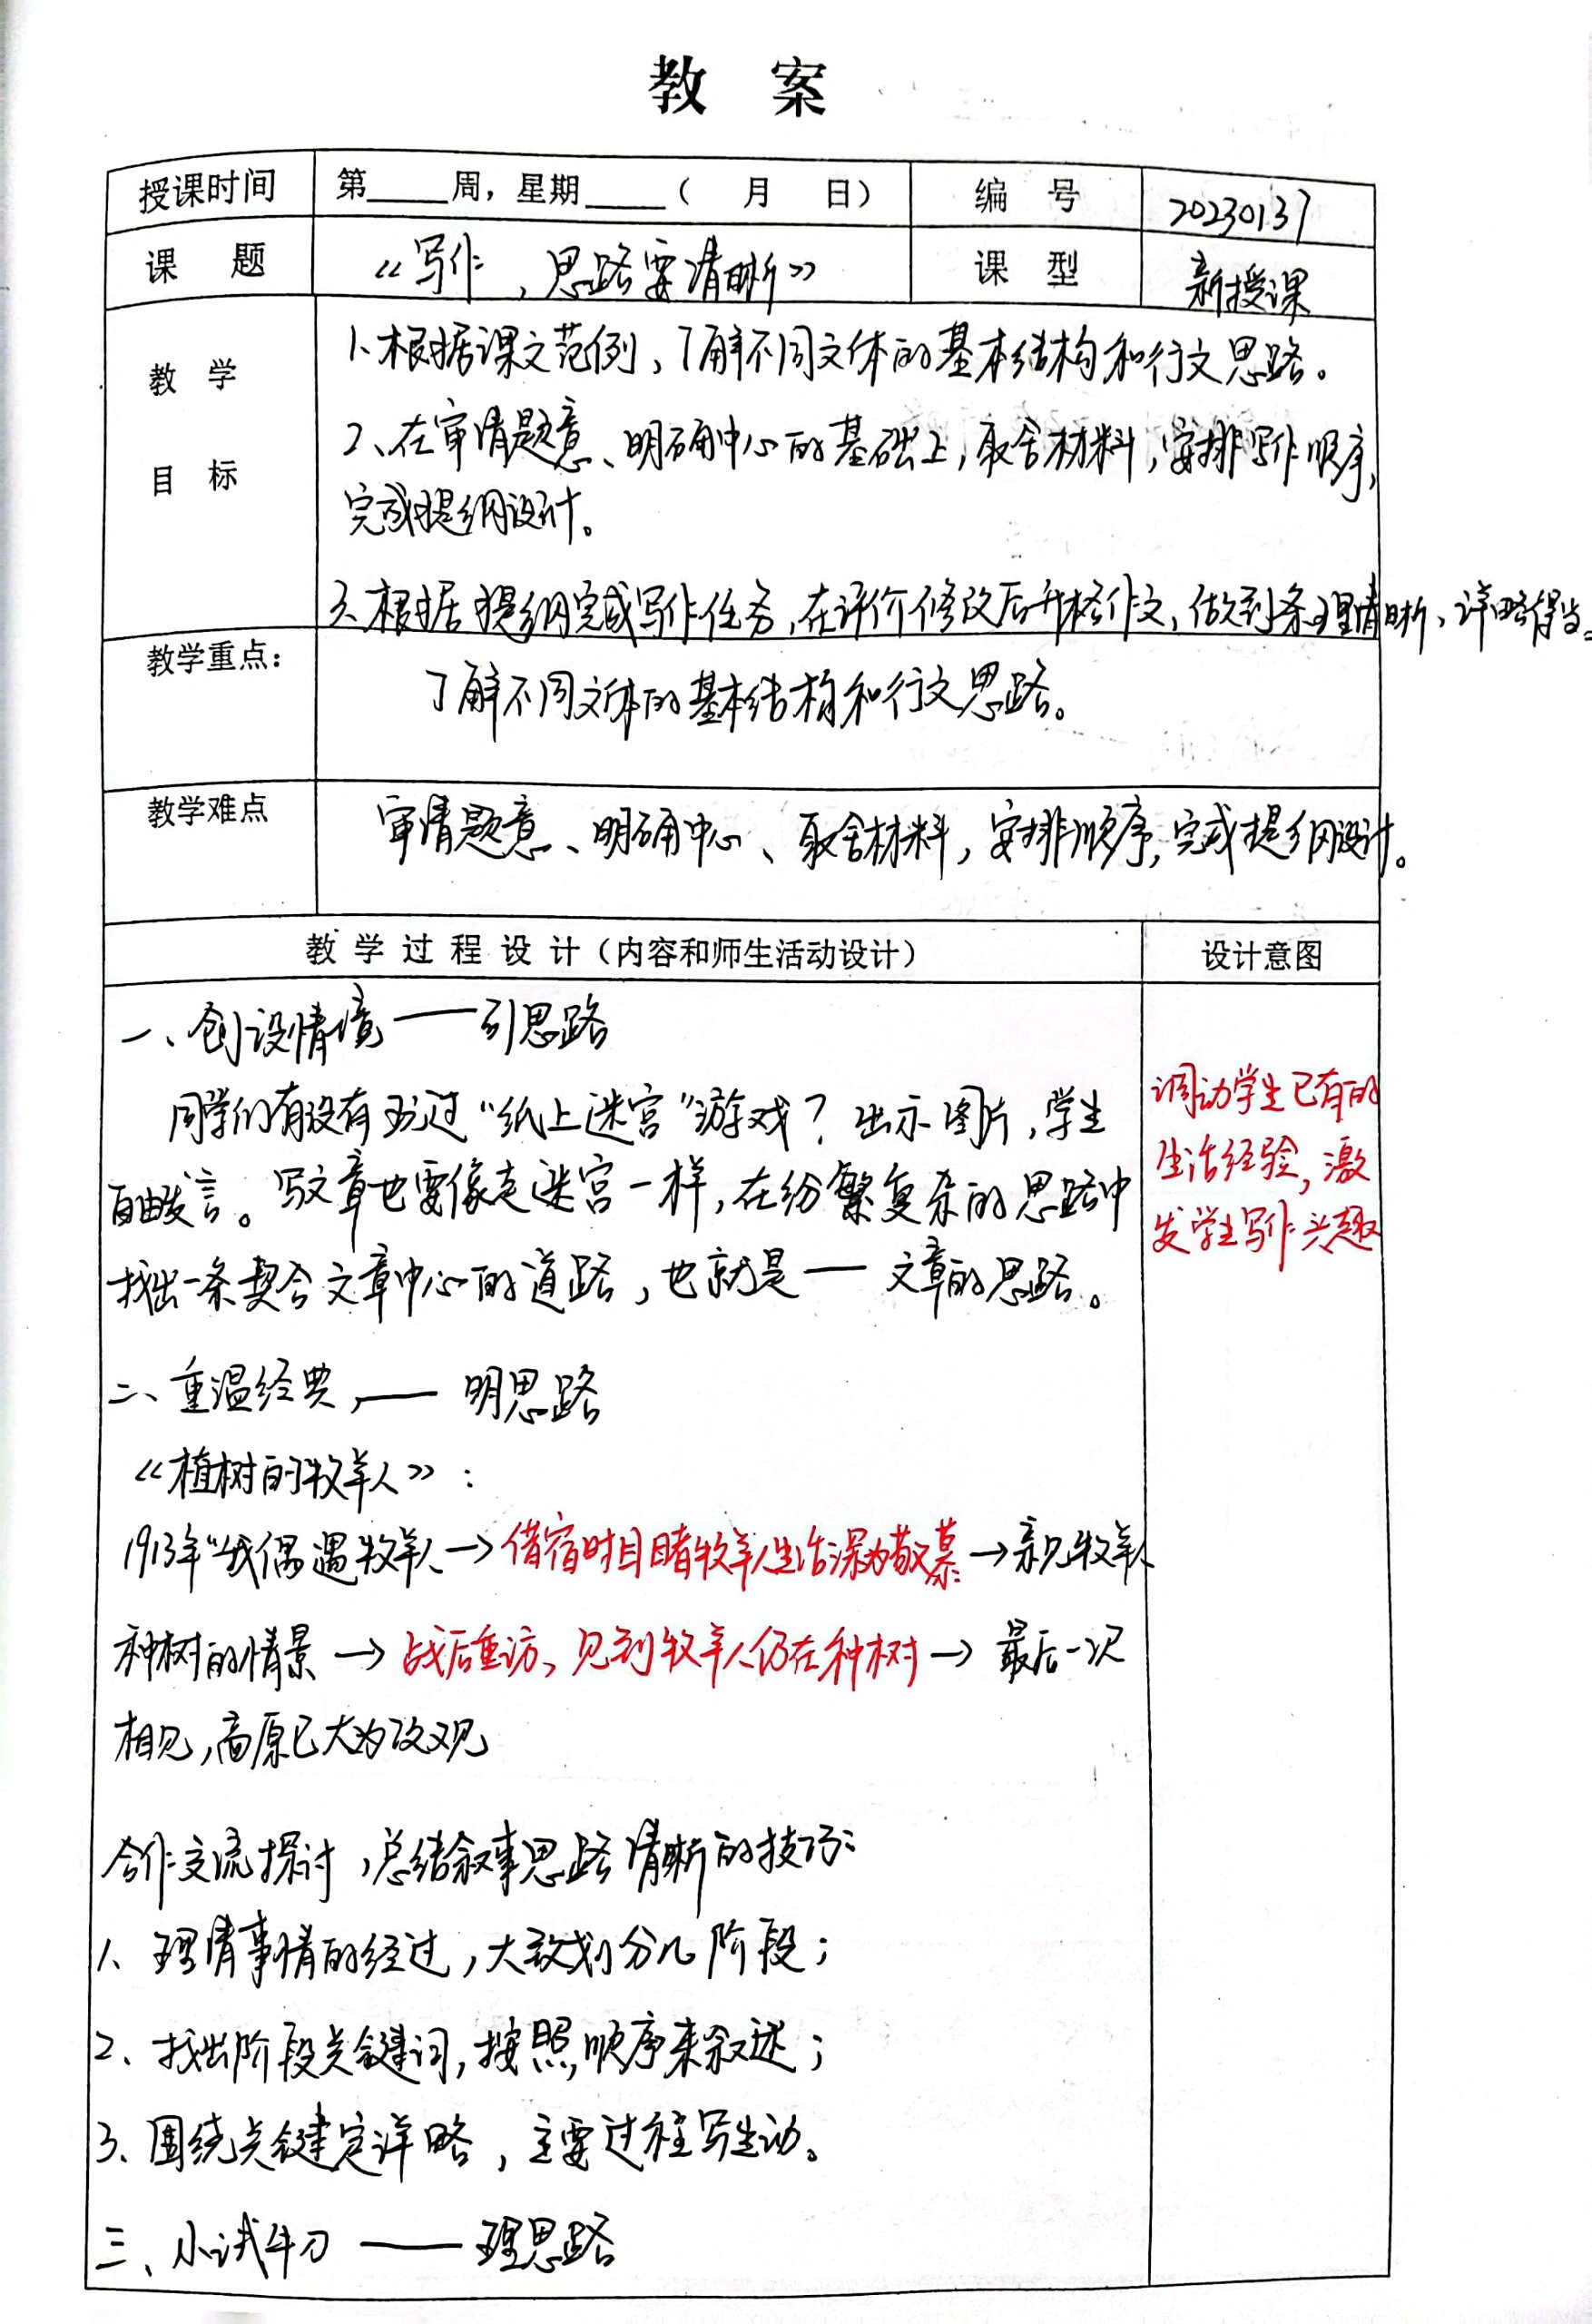 教 案
授课时间 第____周，星期____（ 月 日） 编 号 20230137
课 题 《写作，思路要清晰》 课 型 新授课
教 学 目 标
1、根据课文范例，了解不同文体的基本结构和行文思路。
2、在审清题意、明确中心的基础上，取舍材料，安排写作顺序，
完成提纲设计。
3、根据提纲完成写作任务，在评价修改后升格作文，做到条理清晰、详略得当。
教学重点：
了解不同文体的基本结构和行文思路。
教学难点
审清题意、明确中心、取舍材料，安排顺序，完成提纲设计。
教 学 过 程 设 计（内容和师生活动设计） 设计意图
一、创设情境——引思路
同学们有没有玩过“纸上迷宫”游戏？出示图片，学生
自由发言。写文章也要像走迷宫一样，在纷繁复杂的思路中
找出一条契合文章中心的道路，也就是—文章的思路。
调动学生已有的
生活经验，激
发学生写作兴趣
二、重温经典，——明思路
《植树的牧羊人》：
1913年“我偶遇牧羊人→借宿时目睹牧羊人生活深为敬慕→亲见牧羊人
种树的情景→战后重访、见到牧羊人仍在种树→最后一次
相见，高原已大为改观
合作交流探讨，总结叙事思路清晰的技巧：
1、理清事情的经过，大致划分几阶段；
2、找出阶段关键词，按照顺序来叙述；
3、围绕关键定详略，主要过程写生动。
三、小试牛刀——理思路